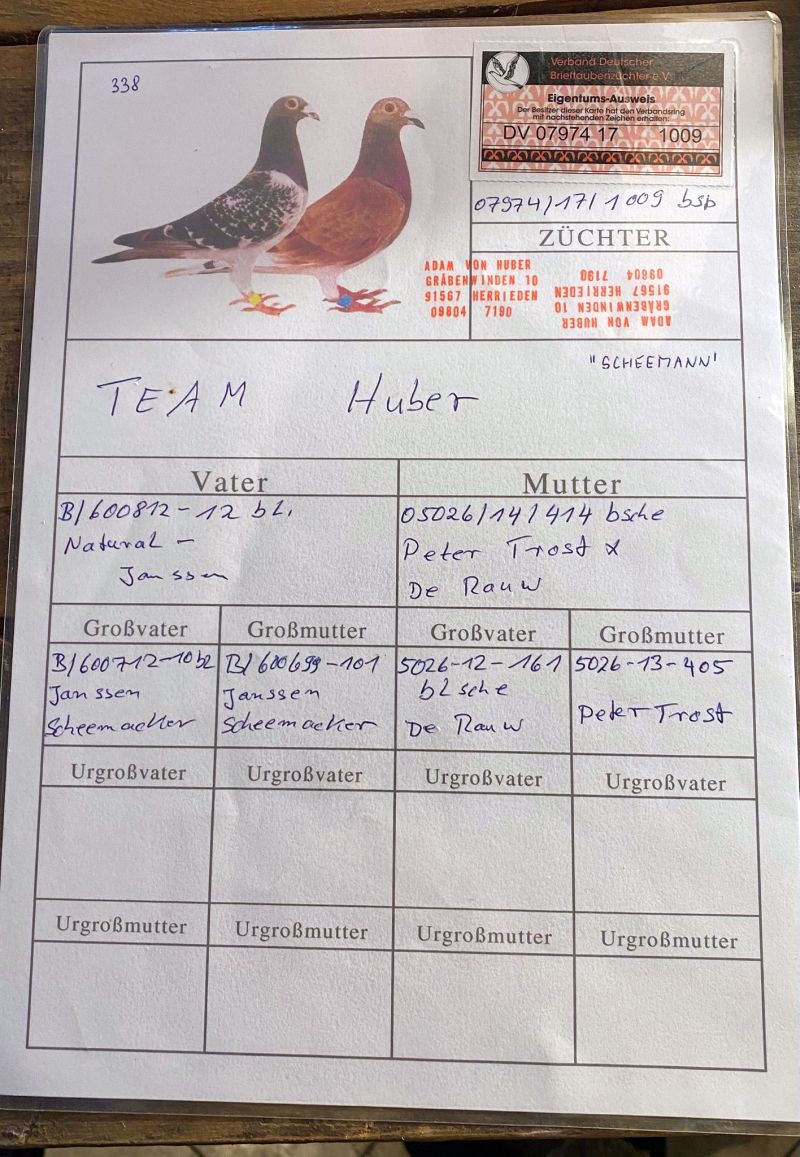 338
Verband Deutscher
Brieftaubenzüchter e.V.
Eigentums-Ausweis
Der Besitzer dieser Karte hat den Verbandsring
mit nachstehenden Zeichen erhalten:
DV 07974 17 1009
07974/17/1009 bsb
ZÜCHTER
ADAM VON HUBER
GRÄBENWINDEN 10
91567 HERRIEDEN
09804 7190
ADAM VON HUBER
GRÄBENWINDEN 10
91567 HERRIEDEN
09804 7190
"SCHEEMANN"
TEAM Huber
Vater
B/600812-12 bl.
Natural -
Janssen
Mutter
05026/14/414 bsche
Peter Trost x
De Rauw
Großvater
B/600712-10 bl
Janssen
Scheemaeker
Großmutter
B/600699-101
Janssen
Scheemaeker
Großvater
5026-12-161
bl sche
De Rauw
Großmutter
5026-13-405
Peter Trost
Urgroßvater
Urgroßvater
Urgroßvater
Urgroßvater
Urgroßmutter
Urgroßmutter
Urgroßmutter
Urgroßmutter